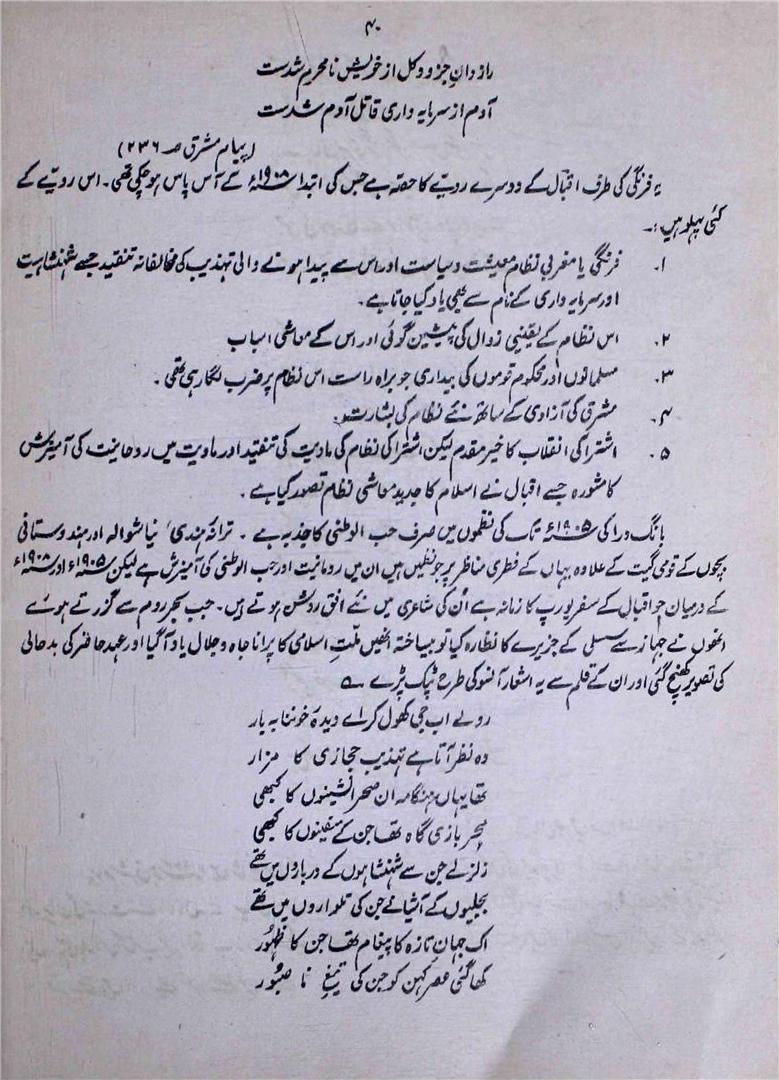 ۴۰
رازدانِ جز و کل از خویش نامحرم شدست
آدم از سرمایہ داری قاتلِ آدم شدست
(پیامِ مشرق ص ۲۳۶)
یہ فرنگی کی طرف اقبال کے دوسرے رویّے کا حصّہ ہے جس کی ابتدا ۱۹۰۸ء کے آس پاس ہو چکی تھی۔ اس رویّے کے
کئی پہلو ہیں:۔
۱۔ فرنگی یا مغربی نظامِ معیشت و سیاست اور اس سے پیدا ہونے والی تہذیب کی مخالفانہ تنقید جسے شہنشاہیت
اور سرمایہ داری کے نام سے بھی یاد کیا جاتا ہے۔
۲۔ اس نظام کے یقینی زوال کی پیشین گوئی اور اس کے معاشی اسباب
۳۔ مسلمانوں اور محکوم قوموں کی بیداری جو براہ راست اس نظام پر ضرب لگا رہی تھی۔
۴۔ مشرق کی آزادی کے ساتھ نئے نظام کی بشارت۔
۵۔ اشتراکی انقلاب کا خیر مقدم لیکن اشتراکی نظام کی مادیت کی تنقید اور مادیت میں روحانیت کی آمیزش
کا مشورہ جسے اقبال نے اسلام کا جدید معاشی نظام تصور کیا ہے۔
بانگ درا کی ۱۹۰۵ء تک کی نظموں میں صرف حب الوطنی کا جذبہ ہے۔ ترانۂ ہندی، نیا شوالہ اور ہندوستانی
بچوں کے قومی گیت کے علاوہ یہاں کے فطری مناظر پر جو نظمیں ہیں ان میں رومانیت اور حب الوطنی کی آمیزش ہے لیکن ۱۹۰۵ء اور ۱۹۰۸ء
کے درمیان جو اقبال کے سفر یورپ کا زمانہ ہے اُن کی شاعری میں نئے افق روشن ہوتے ہیں۔ جب بحرِ روم سے گزرتے ہوئے
انھوں نے جہاز سے سسلی کے جزیرے کا نظارہ کیا تو بیساختہ انھیں ملّتِ اسلامی کا پرانا جاہ و جلال یاد آ گیا اور عہدِ حاضر کی بدحالی
کی تصویر کھنچ گئی اور ان کے قلم سے یہ اشعار آنسو کی طرح ٹپک پڑے ؎
رو لے اب جی کھول کر اے دیدۂ خوننابہ بار
وہ نظر آتا ہے تہذیبِ حجازی کا مزار
تھا یہاں ہنگامہ ان صحرا نشینوں کا کبھی
بحر بازی گاہ تھا جن کے سفینوں کا کبھی
زلزلے جن سے شہنشاہوں کے درباروں میں تھے
بجلیوں کے آشیانے جن کی تلواروں میں تھے
اک جہانِ تازہ کا پیغام تھا جن کا ظہور
کھا گئی عصرِ کہن کو جن کی تیغِ ناصبور